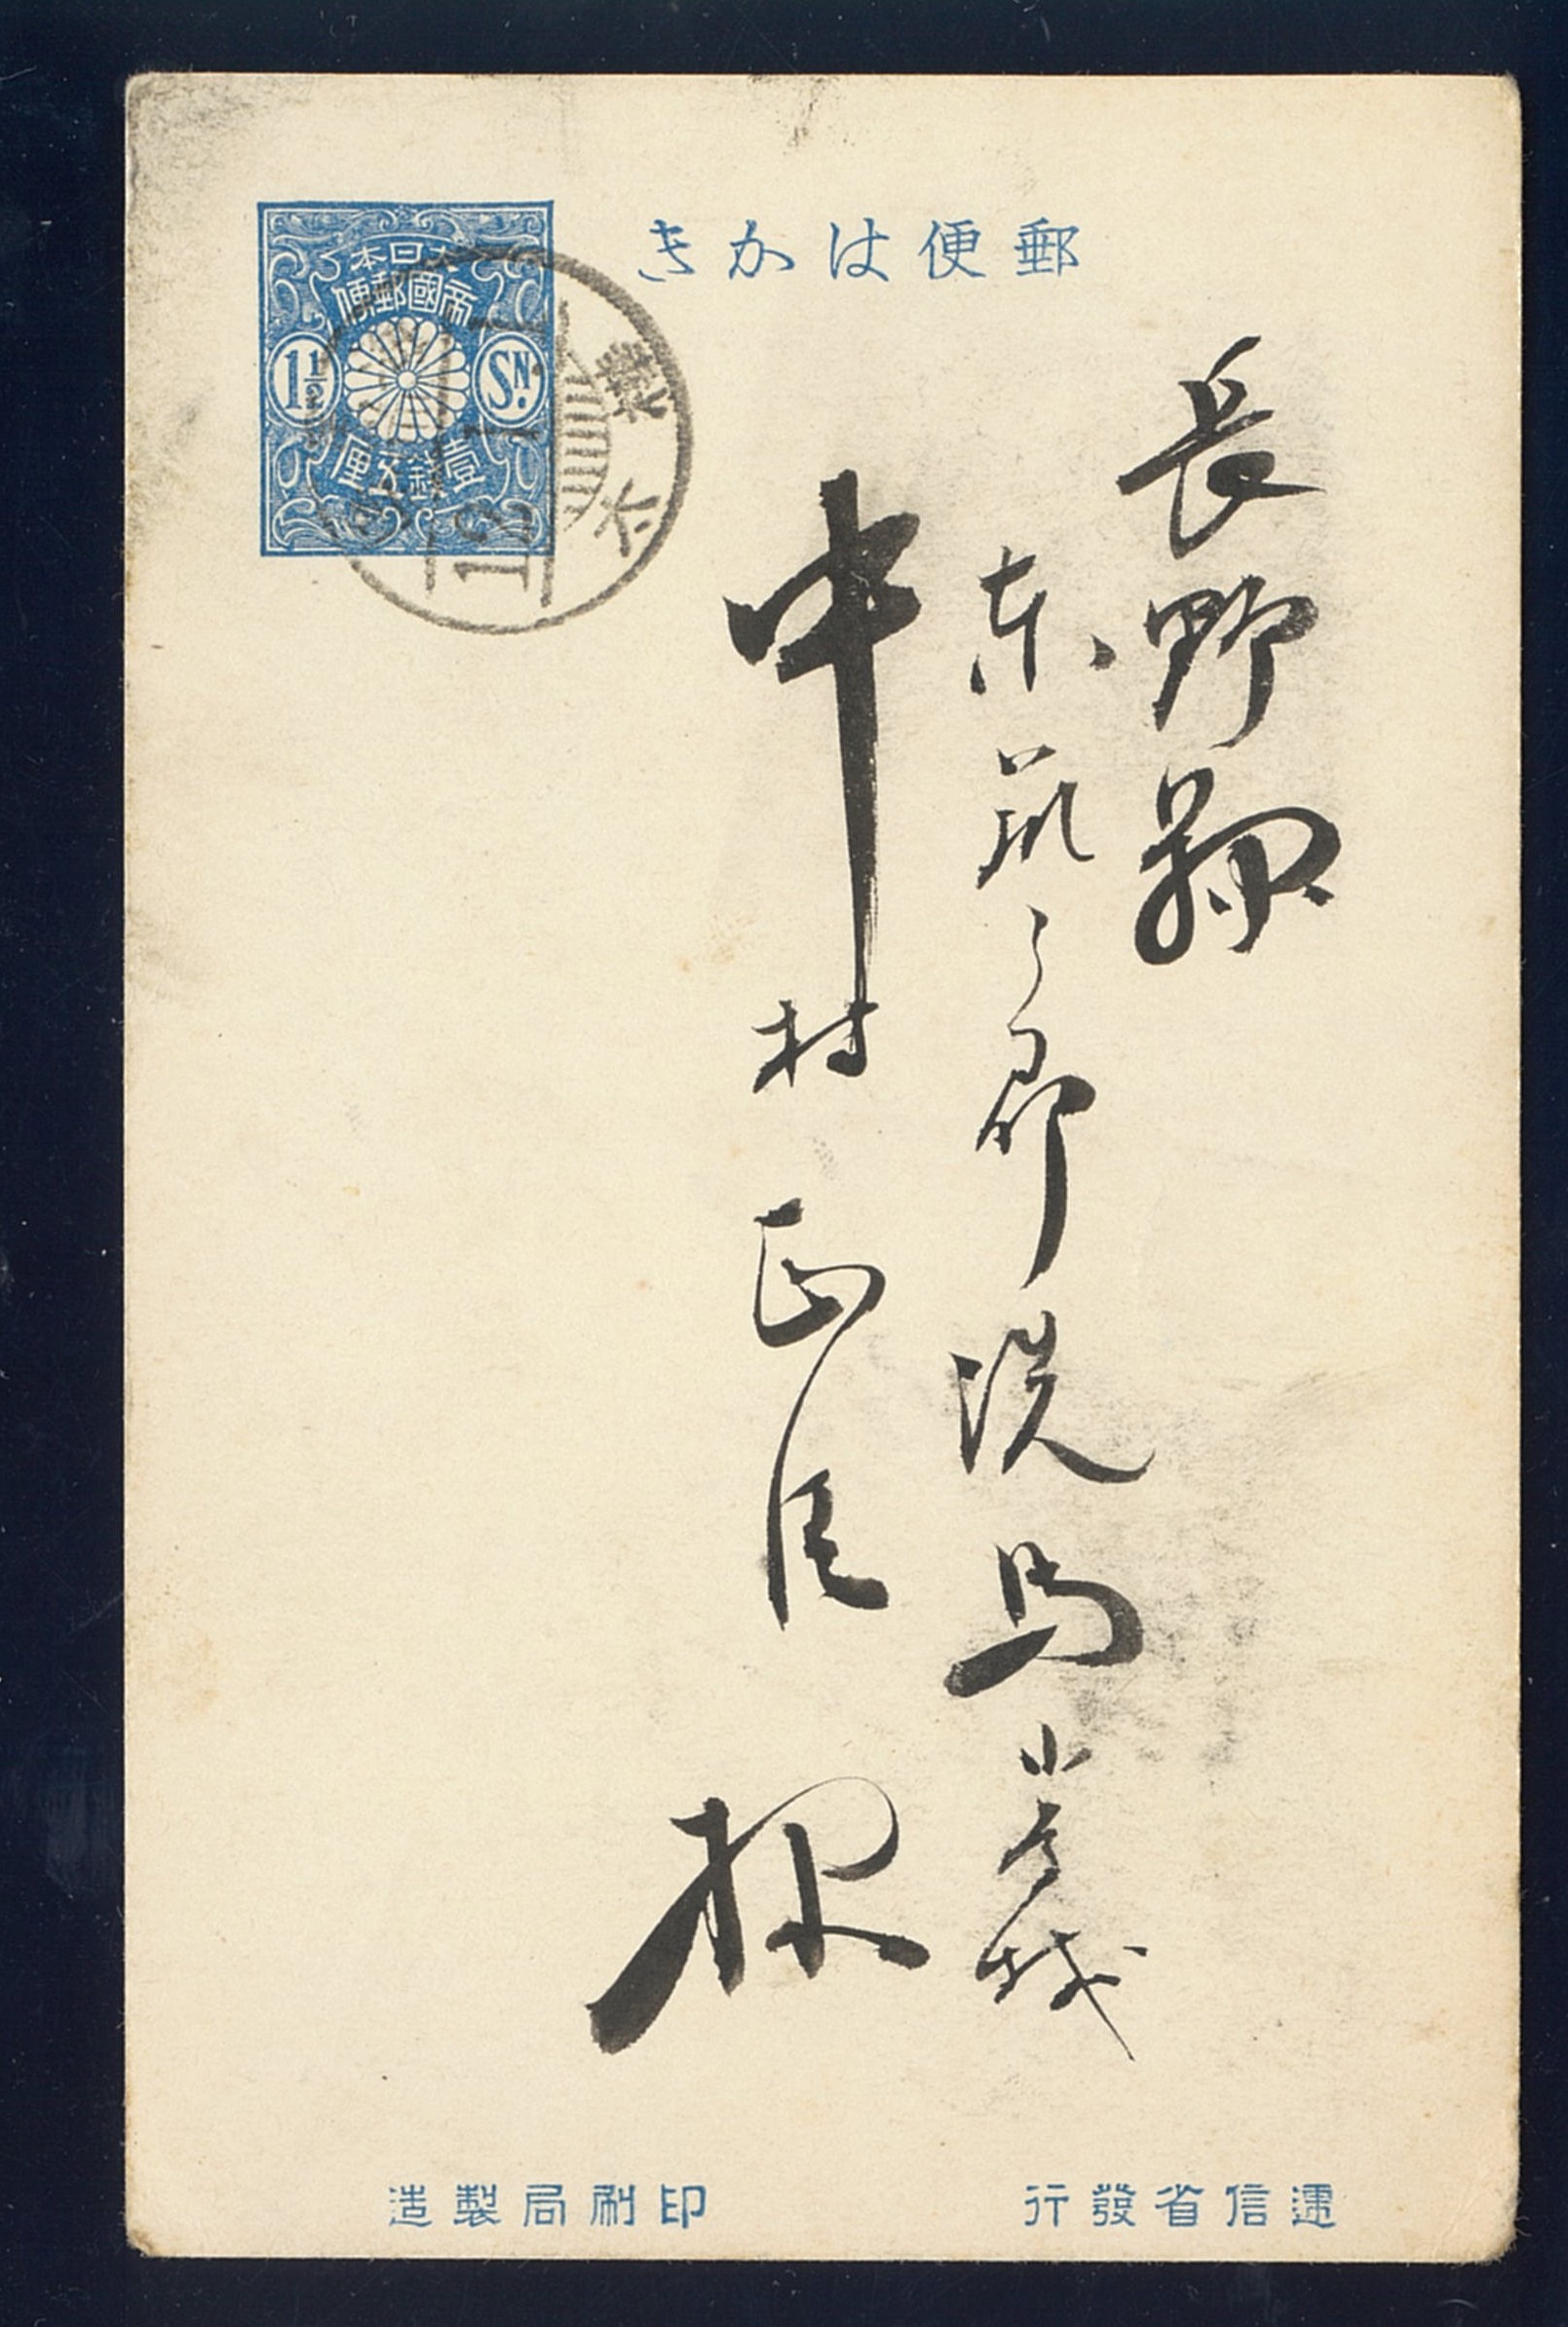 郵便はかき
大日本
帝國郵便
1½ SN.
壹錢五厘
長野縣
東筑 郡洗馬小
中村正臣様
遞信省發行
印刷局製造